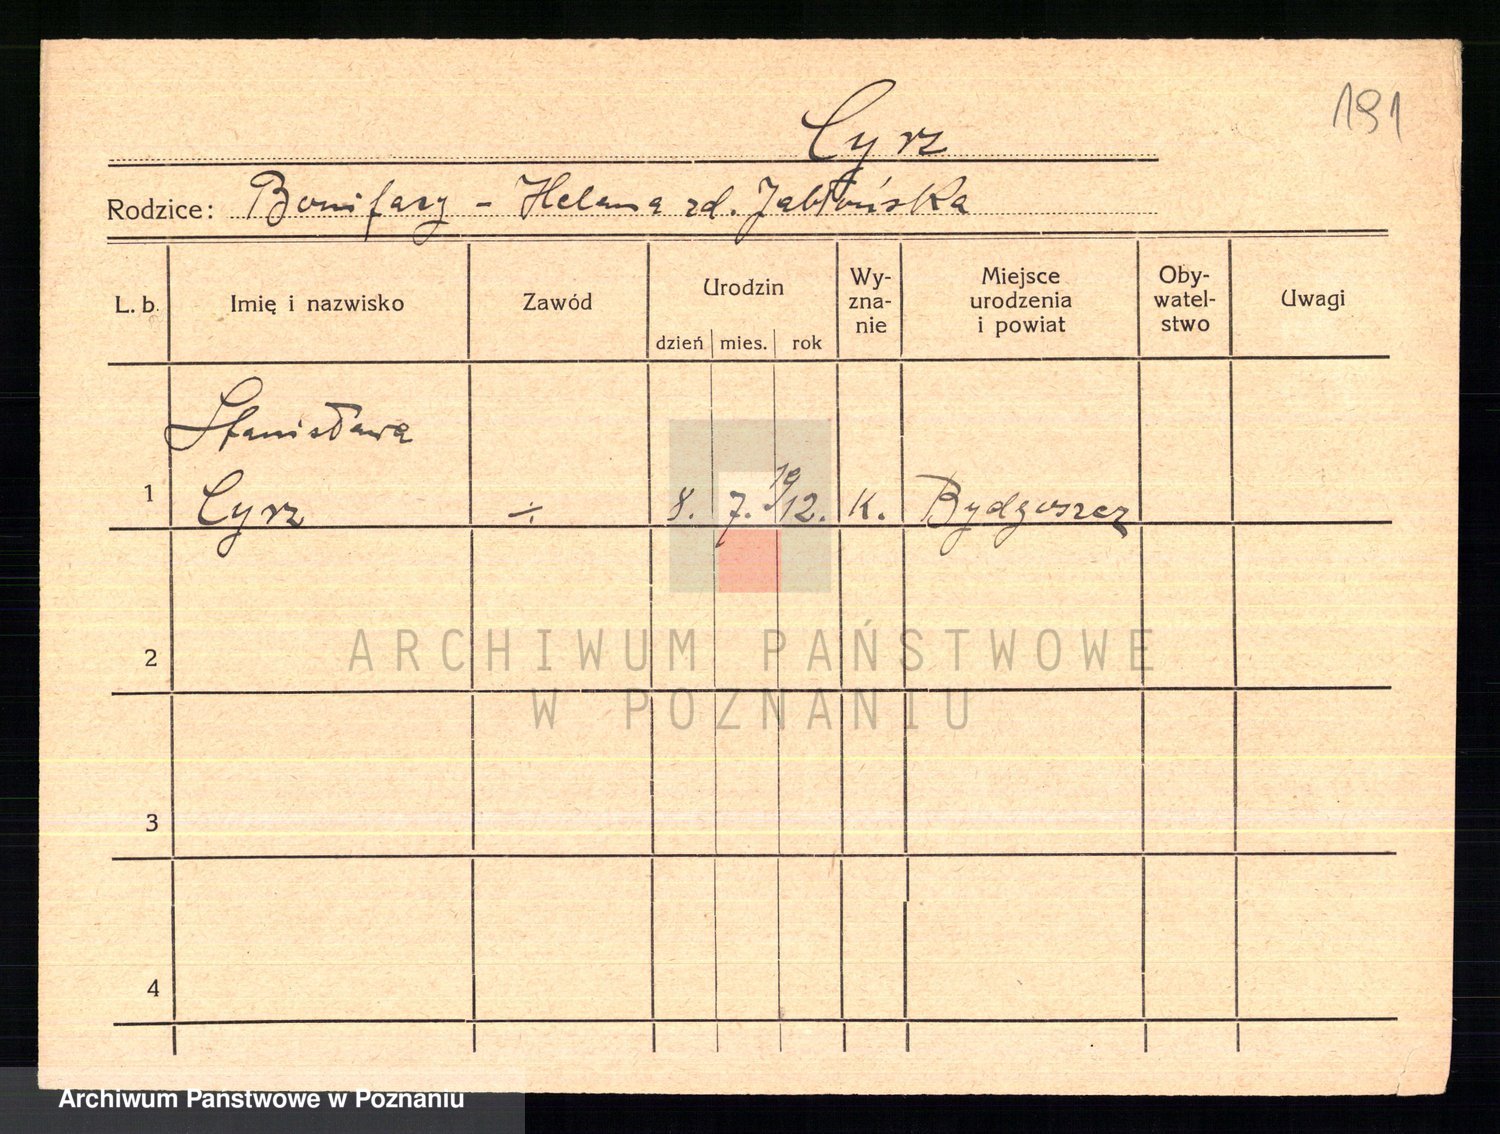 191
Cyrz
Rodzice: Bonifacy - Helena zd. Jabłońska
L. b. Imię i nazwisko Zawód Urodzin dzień mies. rok Wy-zna-nie Miejsce urodzenia i powiat Oby-watel-stwo Uwagi
Stanisława
1 Cyrz ÷ 8. 7. 1912. K. Bydgoszcz
2
ARCHIWUM PAŃSTWOWE
W POZNANIU
3
4
Archiwum Panstwowe w Poznaniu